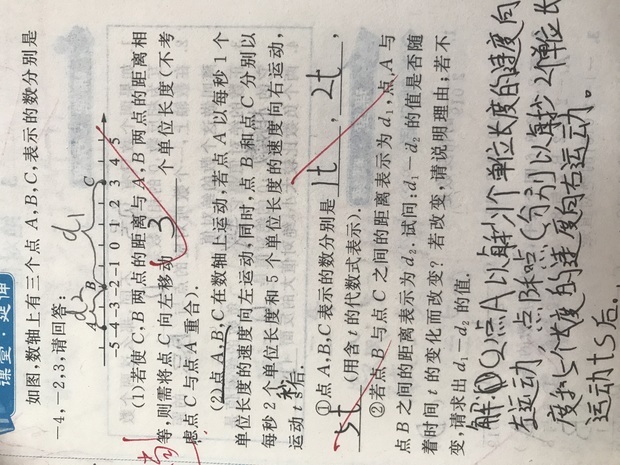 课堂·延伸
如图,数轴上有三个点 A,B,C,表示的数分别是
-4,-2,3,请回答:
d2 d1
A B C
-5 -4 -3 -2 -1 0 1 2 3 4 5
(1)若使 C,B 两点的距离与 A,B 两点的距离相
等,则需将点 C 向左移动 3 个单位长度(不考
虑点 C 与点 A 重合).
(2)点 A,B,C 在数轴上运动,若点 A 以每秒 1 个
单位长度的速度向左运动,同时,点 B 和点 C 分别以
每秒 2 个单位长度和 5 个单位长度的速度向右运动,
运动 t 秒后.
①点 A,B,C 表示的数分别是 1t , 2t ,
5t (用含 t 的代数式表示).
②若点 B 与点 C 之间的距离表示为 d₁,点 A 与
点 B 之间的距离表示为 d₂.试问:d₁-d₂ 的值是否随
着时间 t 的变化而改变?若改变,请说明理由;若不
变,请求出 d₁-d₂ 的值.
解:(1)①点A以每秒1个单位长度的速度向
左运动,点B和点C分别以每秒2个单位长
度和5个长度的速度向右运动。
运动ts后。